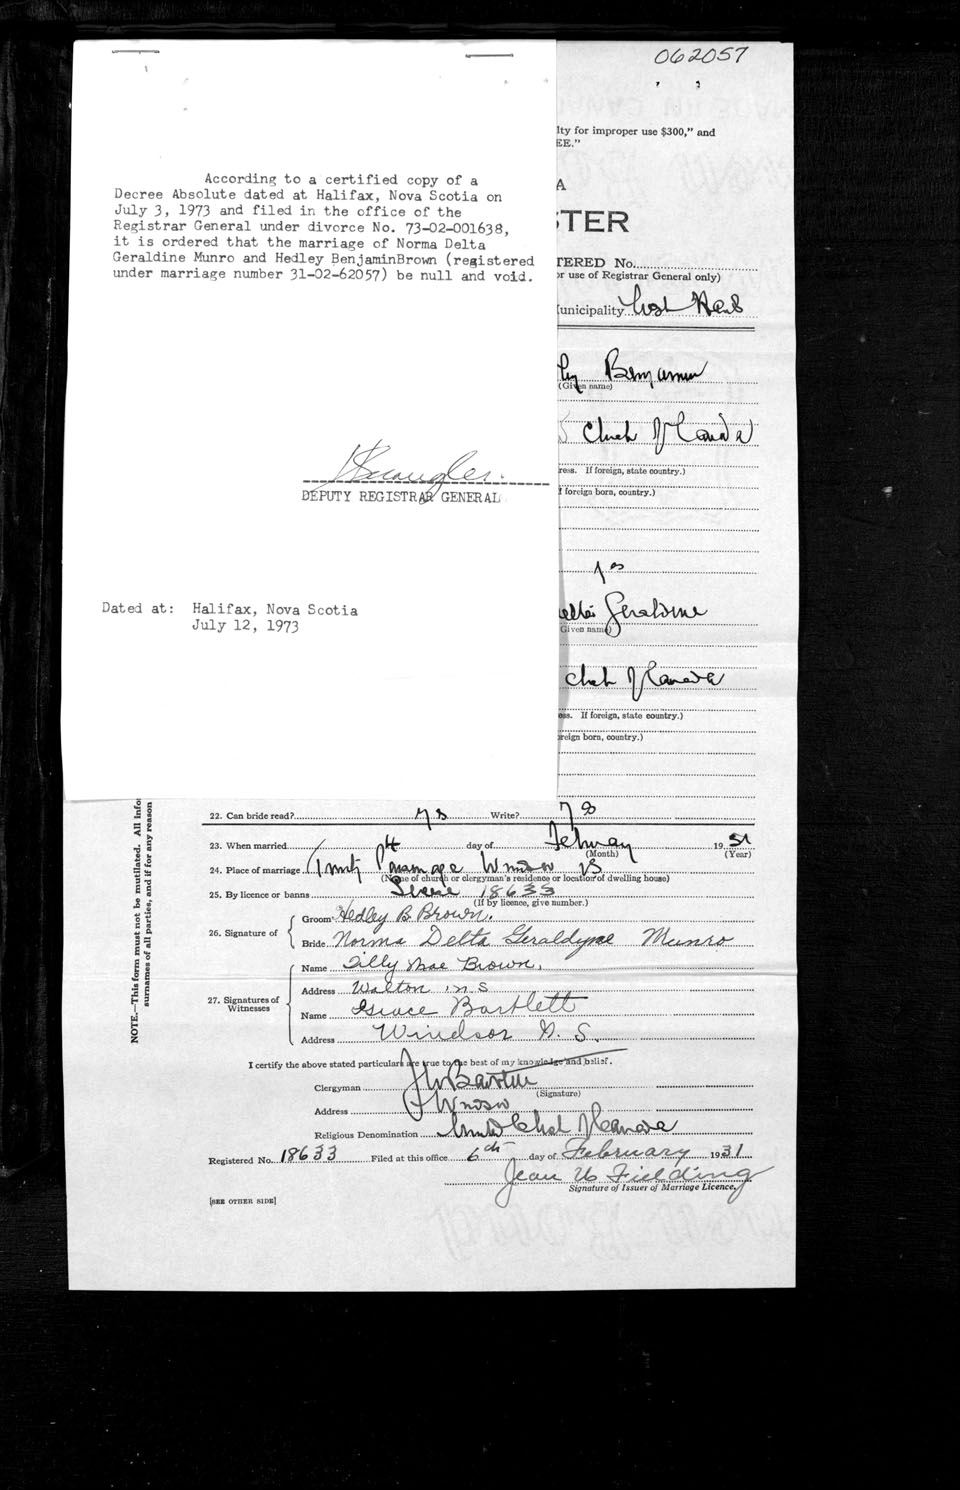 062057
lty for improper use $300," and
EE."
A
STER
TERED No.
or use of Registrar General only)
unicipality
According to a certified copy of a
Decree Absolute dated at Halifax, Nova Scotia on
July 3, 1973 and filed in the office of the
Registrar General under divorce No. 73-02-001638,
it is ordered that the marriage of Norma Delta
Geraldine Munro and Hedley BenjaminBrown (registered
under marriage number 31-02-62057) be null and void.
DEPUTY REGISTRAR GENERAL
Dated at: Halifax, Nova Scotia
July 12, 1973
Benjamin
(Given name)
ress. If foreign, state country.)
f foreign born, country.)
Geraldine
Given name)
ess. If foreign, state country.)
reign born, country.)
NOTE.—This form must not be mutilated. All infor
surnames of all parties, and if for any reason
22. Can bride read? Write?
23. When married 4 day of 19 31
(Month) (Year)
24. Place of marriage Windsor NS
(Name of church or clergyman's residence or location of dwelling house)
25. By licence or banns 18633
(If by licence, give number.)
26. Signature of
Groom Hedley B Brown.
Bride Norma Delta Geraldyne Munro
27. Signatures of Witnesses
Name Tilly Mae Brown.
Address Walton N S
Name Grace Bartlett
Address Windsor N. S.
I certify the above stated particulars are true to the best of my knowledge and belief.
Clergyman
(Signature)
Address Windsor
Religious Denomination United Church of Canada
Registered No. 18633 Filed at this office 6th day of February 1931
Jean W Fielding
Signature of Issuer of Marriage Licence.
[SEE OTHER SIDE]